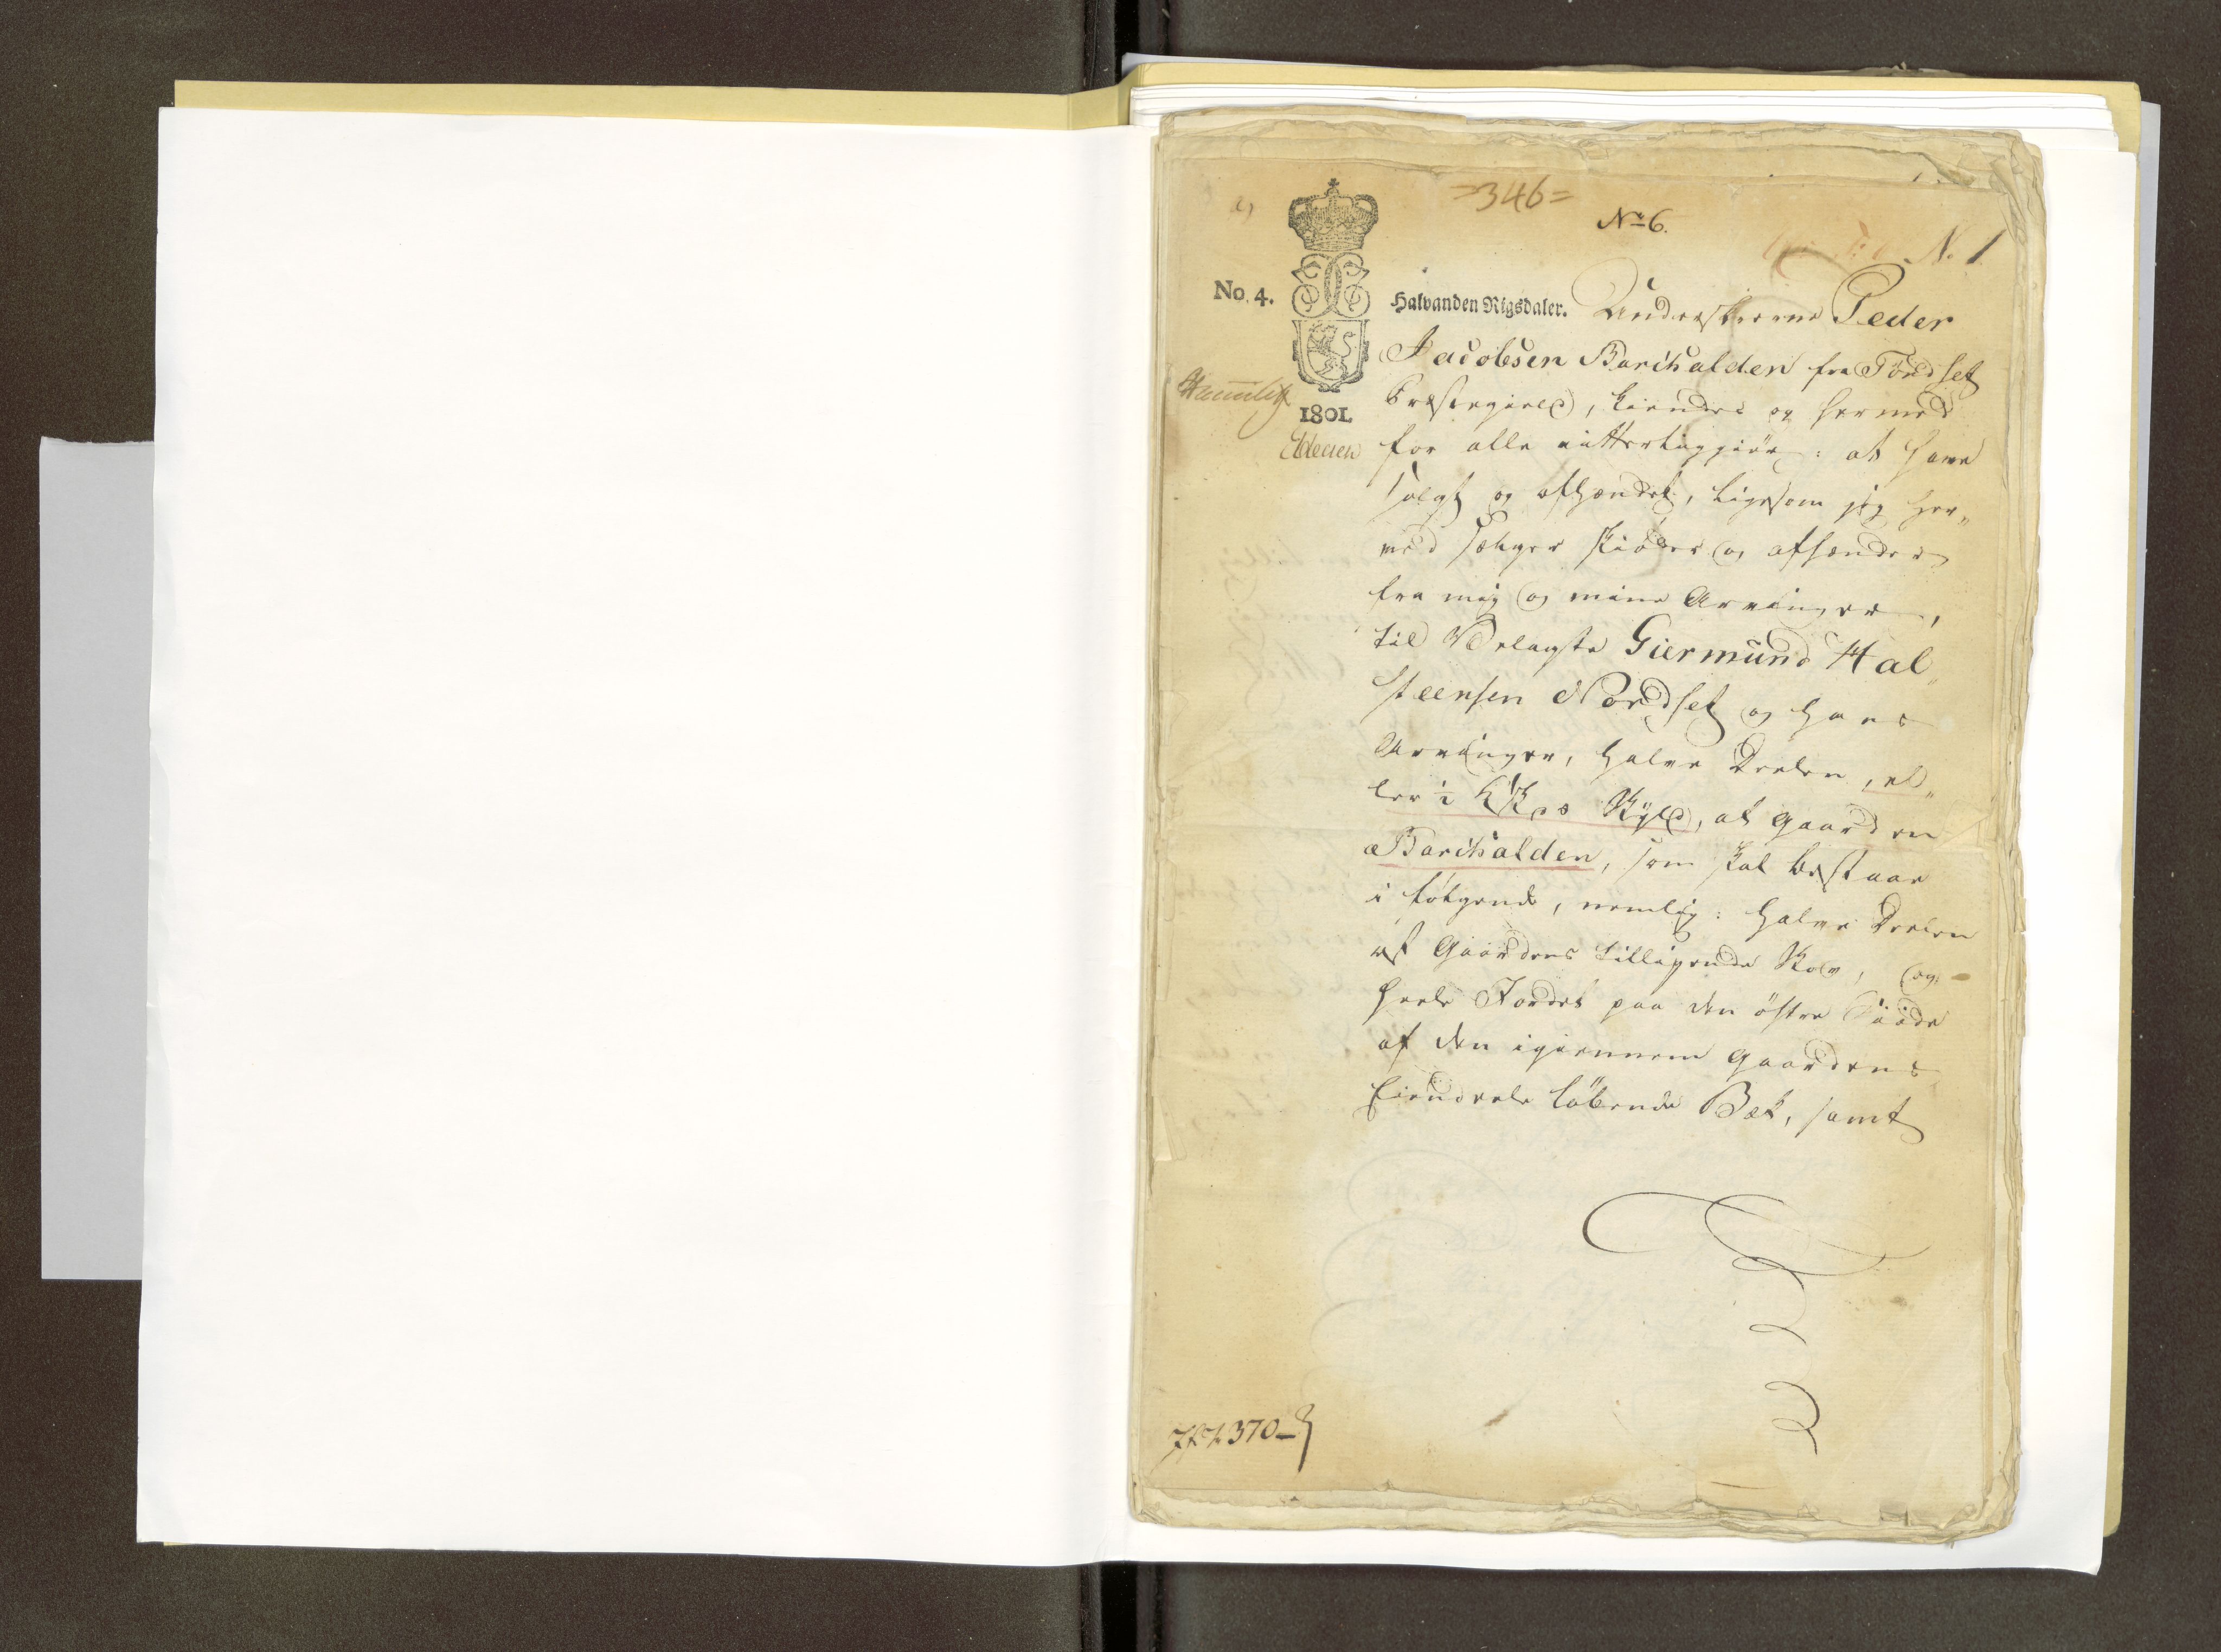 a)
=346=
No 6.
N. 1
No. 4.
Halvanden Rigsdaler. Underskrevne Peder
Jacobsen Barchalden fra Tøndset
Præstegield, kiendes og hermed
1801.
for alle vitterliggiør: at have
solgt og afhændet, ligesom jeg her„
ved sælger skiøder og afhænder
fra mig og mine Arvinger,
til Velagte Giermund Hal„
steensen Nordset og hans
Arvinger, halve Deelen, el„
ler ½ Skyld, af Gaarden
Barchalden, som skal bestaae
i følgende, nemlig: halve Deelen
af Gaardens tilliggende Skov, og
heele Jordet paa den østre Siide
af den igiennem Gaardens
Eiendeele løbende Bæk, samt
370